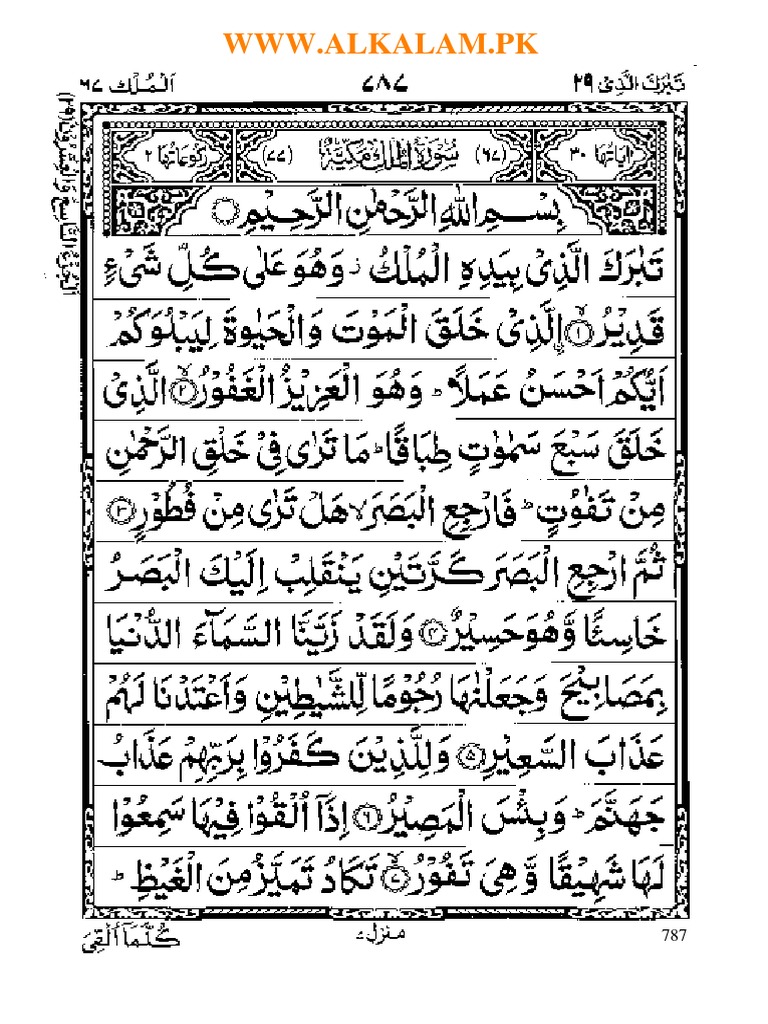 WWW.ALKALAM.PK
تَبٰرَكَ الَّذِیْ ۲۹ ۷۸۷ اَلْمُلْك ۶۷
اٰيَاتُهَا ۳۰ (۶۷) سُوْرَةُ الْمُلْكِ مَكِّيَّةٌ (۷۷) رُكُوْعَاتُهَا ۲
اَلْجُزْءُ التَّاسِعُ وَالْعِشْرُوْنَ (۲۹)
بِسْمِ اللهِ الرَّحْمٰنِ الرَّحِيْمِ
تَبٰرَكَ الَّذِیْ بِيَدِهِ الْمُلْكُ ز وَهُوَ عَلٰی كُلِّ شَیْءٍ
قَدِيْرُ ۱ اِلَّذِیْ خَلَقَ الْمَوْتَ وَالْحَيٰوةَ لِيَبْلُوَكُمْ
اَيُّكُمْ اَحْسَنُ عَمَلًا ط وَهُوَ الْعَزِيْزُ الْغَفُوْرُ ۲ الَّذِیْ
خَلَقَ سَبْعَ سَمٰوٰتٍ طِبَاقًا ط مَا تَرٰی فِیْ خَلْقِ الرَّحْمٰنِ
مِنْ تَفٰوُتٍ ط فَارْجِعِ الْبَصَرَ لا هَلْ تَرٰی مِنْ فُطُوْرٍ ۳
ثُمَّ ارْجِعِ الْبَصَرَ كَرَّتَيْنِ يَنْقَلِبْ اِلَيْكَ الْبَصَرُ
خَاسِئًا وَّهُوَ حَسِيْرٌ ۴ وَلَقَدْ زَيَّنَّا السَّمَآءَ الدُّنْيَا
بِمَصَابِيْحَ وَجَعَلْنٰهَا رُجُوْمًا لِّلشَّيٰطِيْنِ وَاَعْتَدْنَا لَهُمْ
عَذَابَ السَّعِيْرِ ۵ وَلِلَّذِيْنَ كَفَرُوْا بِرَبِّهِمْ عَذَابُ
جَهَنَّمَ ط وَبِئْسَ الْمَصِيْرُ ۶ اِذَآ اُلْقُوْا فِيْهَا سَمِعُوْا
لَهَا شَهِيْقًا وَّهِیَ تَفُوْرُ ۷ تَكَادُ تَمَيَّزُ مِنَ الْغَيْظِ ط
كُلَّمَآ اُلْقِیَ منزل ۷ 787